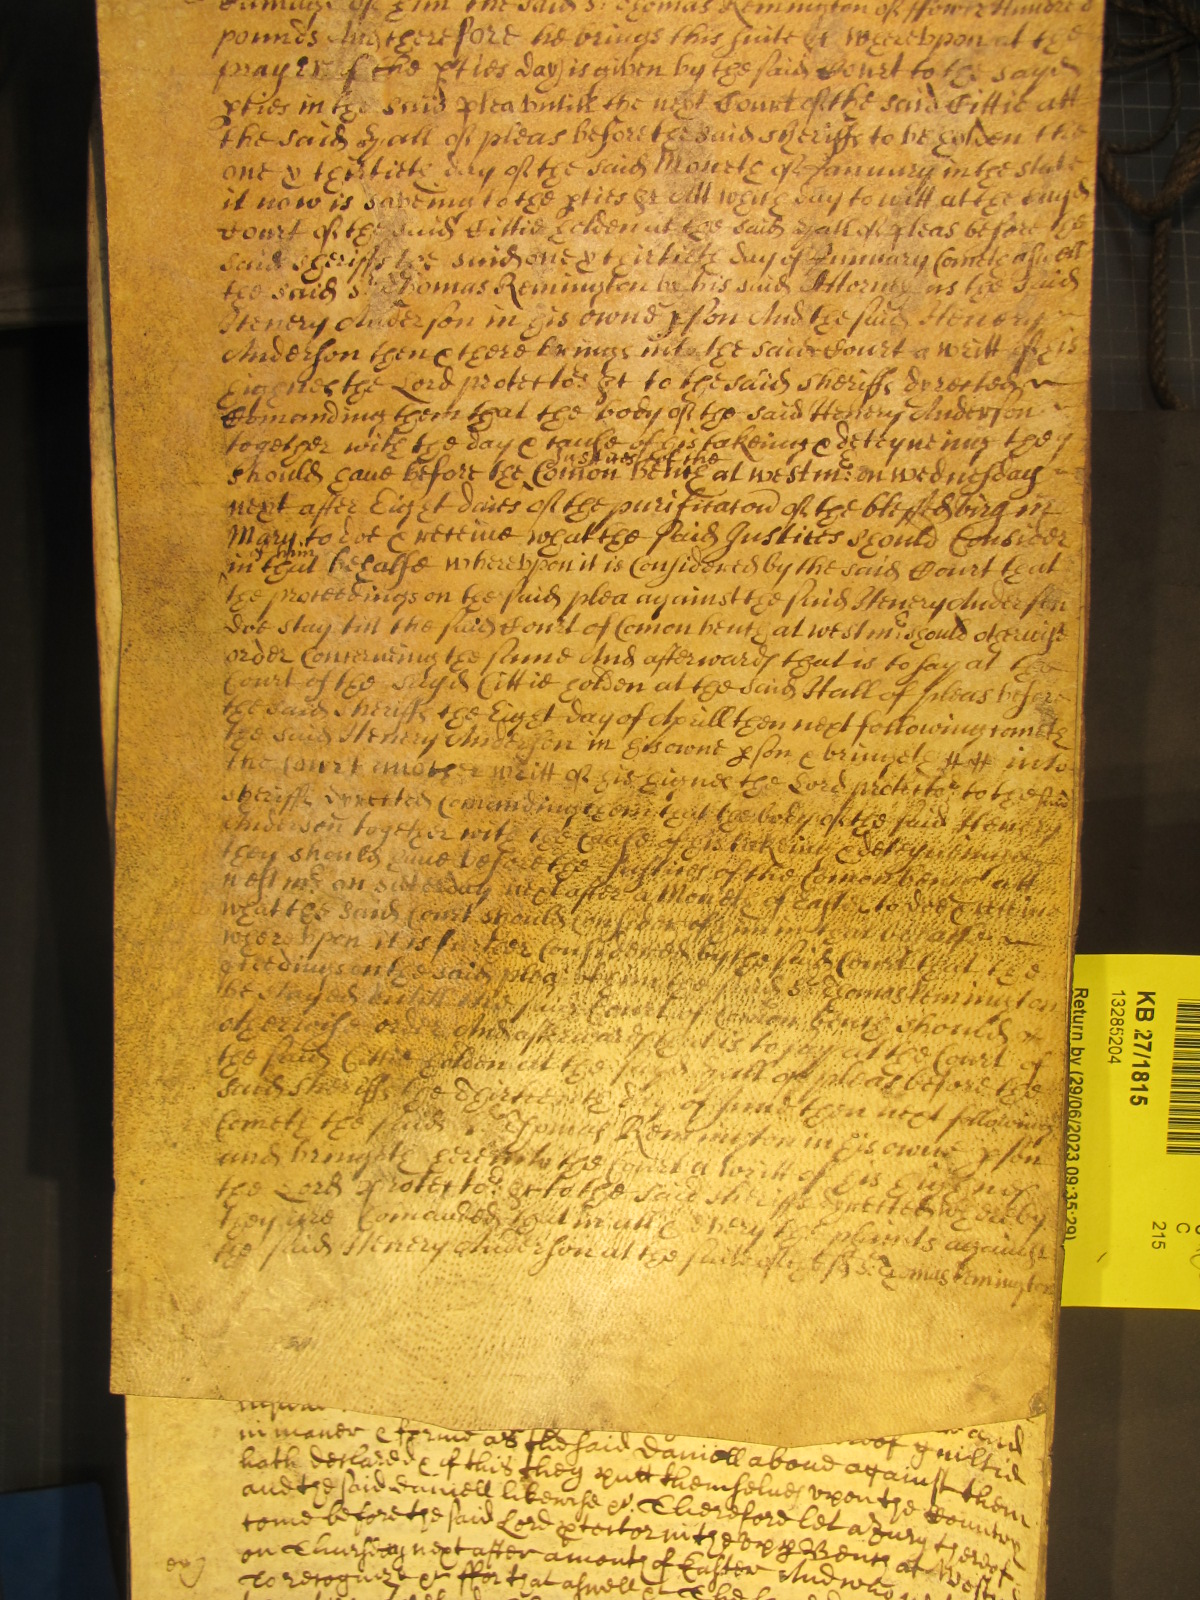 damage of him the said Sr Thomas Remington of ffower Hundred
pounds And therefore he brings this suite &c wherevpon at the
prayer of the pties day is given by the said Court to the sayd
pties in the said plea vntill the next Court of the said Cittie att
the said Hall of pleas before the said sheriffs to be holden the
one & thirtieth day of the said Moneth of January in the state
it now is saveing to the pties &c Att which day to witt at the sayd
Court of the said Cittie holden at the said Hall of pleas before the
said sheriffs the said one & thirtieth day of January Cometh aswell
the said Sr Thomas Remington by his said Attorney as the said
Henery Anderson in his owne pson And the said Henery
Anderson then & there brings into the said Court a writt of his
highnes the Lord protector &c to the said sheriffs directed
Comanding them that the body of the said Henery Anderson
together with the day & cause of his takeing & deteyneing they
Justices of the
should have before the Comon bench at westmr on wednesday
next after Eight daies of the purificacon of the blessed virgin
Mary to doe & receive what the said Justices should Consider
of him
in that behalfe wherevpon it is Considered by the said Court that
the proceedings on the said plea against the said Henery Anderson
doe stay till the said Court of Comon bench at westmr should otherwise
order Concerning the same And afterwards that is to say at the
Court of the sayd Cittie holden at the said Hall of pleas before
the said sheriffs the Eight day of Aprill then next following cometh
the said Henery Anderson in his owne pson & bringeth into
the Court another writt of his highnes the Lord protector to the said
sheriffs directed Comanding them that the body of the said Henery
Anderson together with the cause of his takeing & deteyneing
they should have before the Justices of the Comon bench att
westmr on satterday next after a Moneth of Easter to doe & receive
what the said Court should Consider of him in that behalfe
wherevpon it is further Considered by the said Court that the
pceedings on the said plea the said Sr Thomas Remington
be stayed vntill the said Court of Comon bench should
otherwise order And afterwards that is to say at the Court of
the said Cittie holden at the said Hall of pleas before the
said sheriffs the Thirteenth day of June then next following
Cometh the said Sr Thomas Remington in his owne pson
and bringeth here into the Court a writt of his highnes
the Lord protector &c to the said sheriffs directed whereby
they are Comanded that in all & every the plaints against
the said Henery Anderson at the suite of the said Sr Thomas Remington
in maner & forme as the said Daniell above against them
hath declared & of this they putt themselves vpon the Country
and the said Daniell likewise &c Therefore let a Jury thereof
come before the said Lord ptector in the vpp Bench at Westmr
on Thursday next after a month of Easter And who
to recognize &c ffor that aswell &c The
KB 27/1815
13285204
Return by (29/06/2023 09:35:29)
215
C